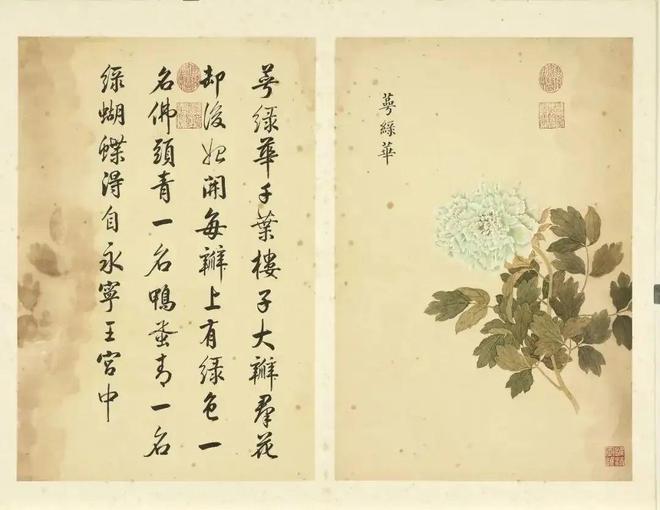 萼綠華
萼緑華千葉樓子大瓣羣花
却後始開每瓣上有緑色一
名佛頭青一名鴨蛋青一名
緑蝴蝶得自永寧王宫中